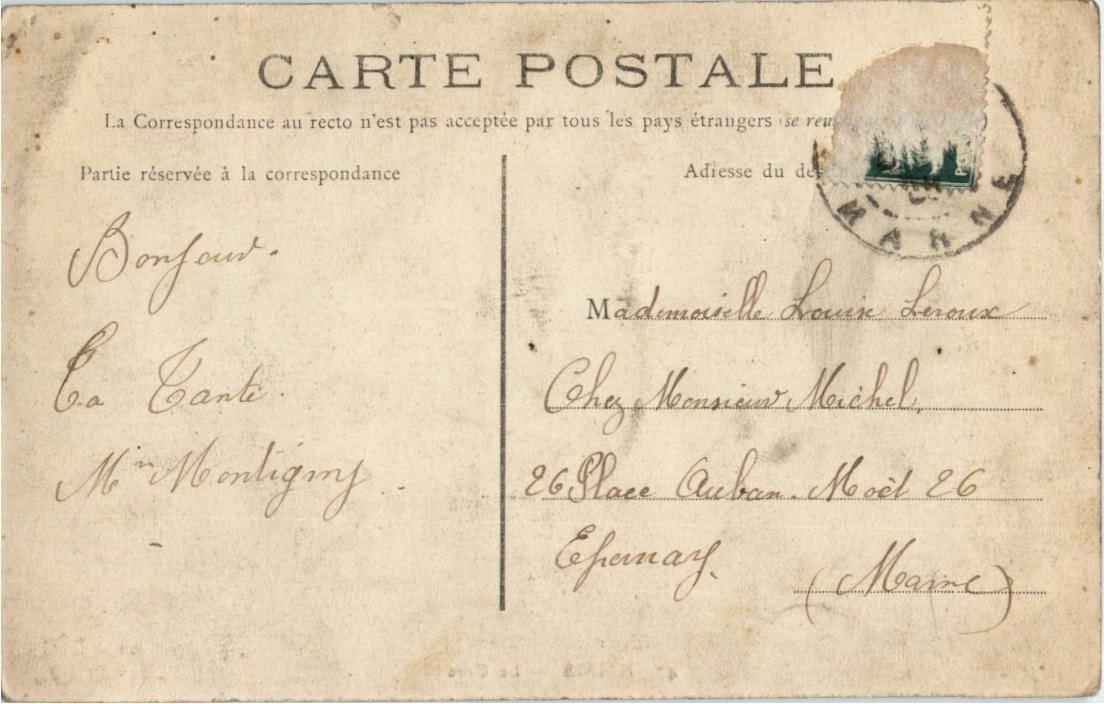 CARTE POSTALE
La Correspondance au recto n'est pas acceptée par tous les pays étrangers
Partie réservée à la correspondance
Adresse du
MARNE
Bonjour.
Ta Tante.
Mon Montigny.
Mademoiselle Louise Leroux
Chez Monsieur Michel,
26 Place Auban-Moët 26
Epernay.
(Marne)